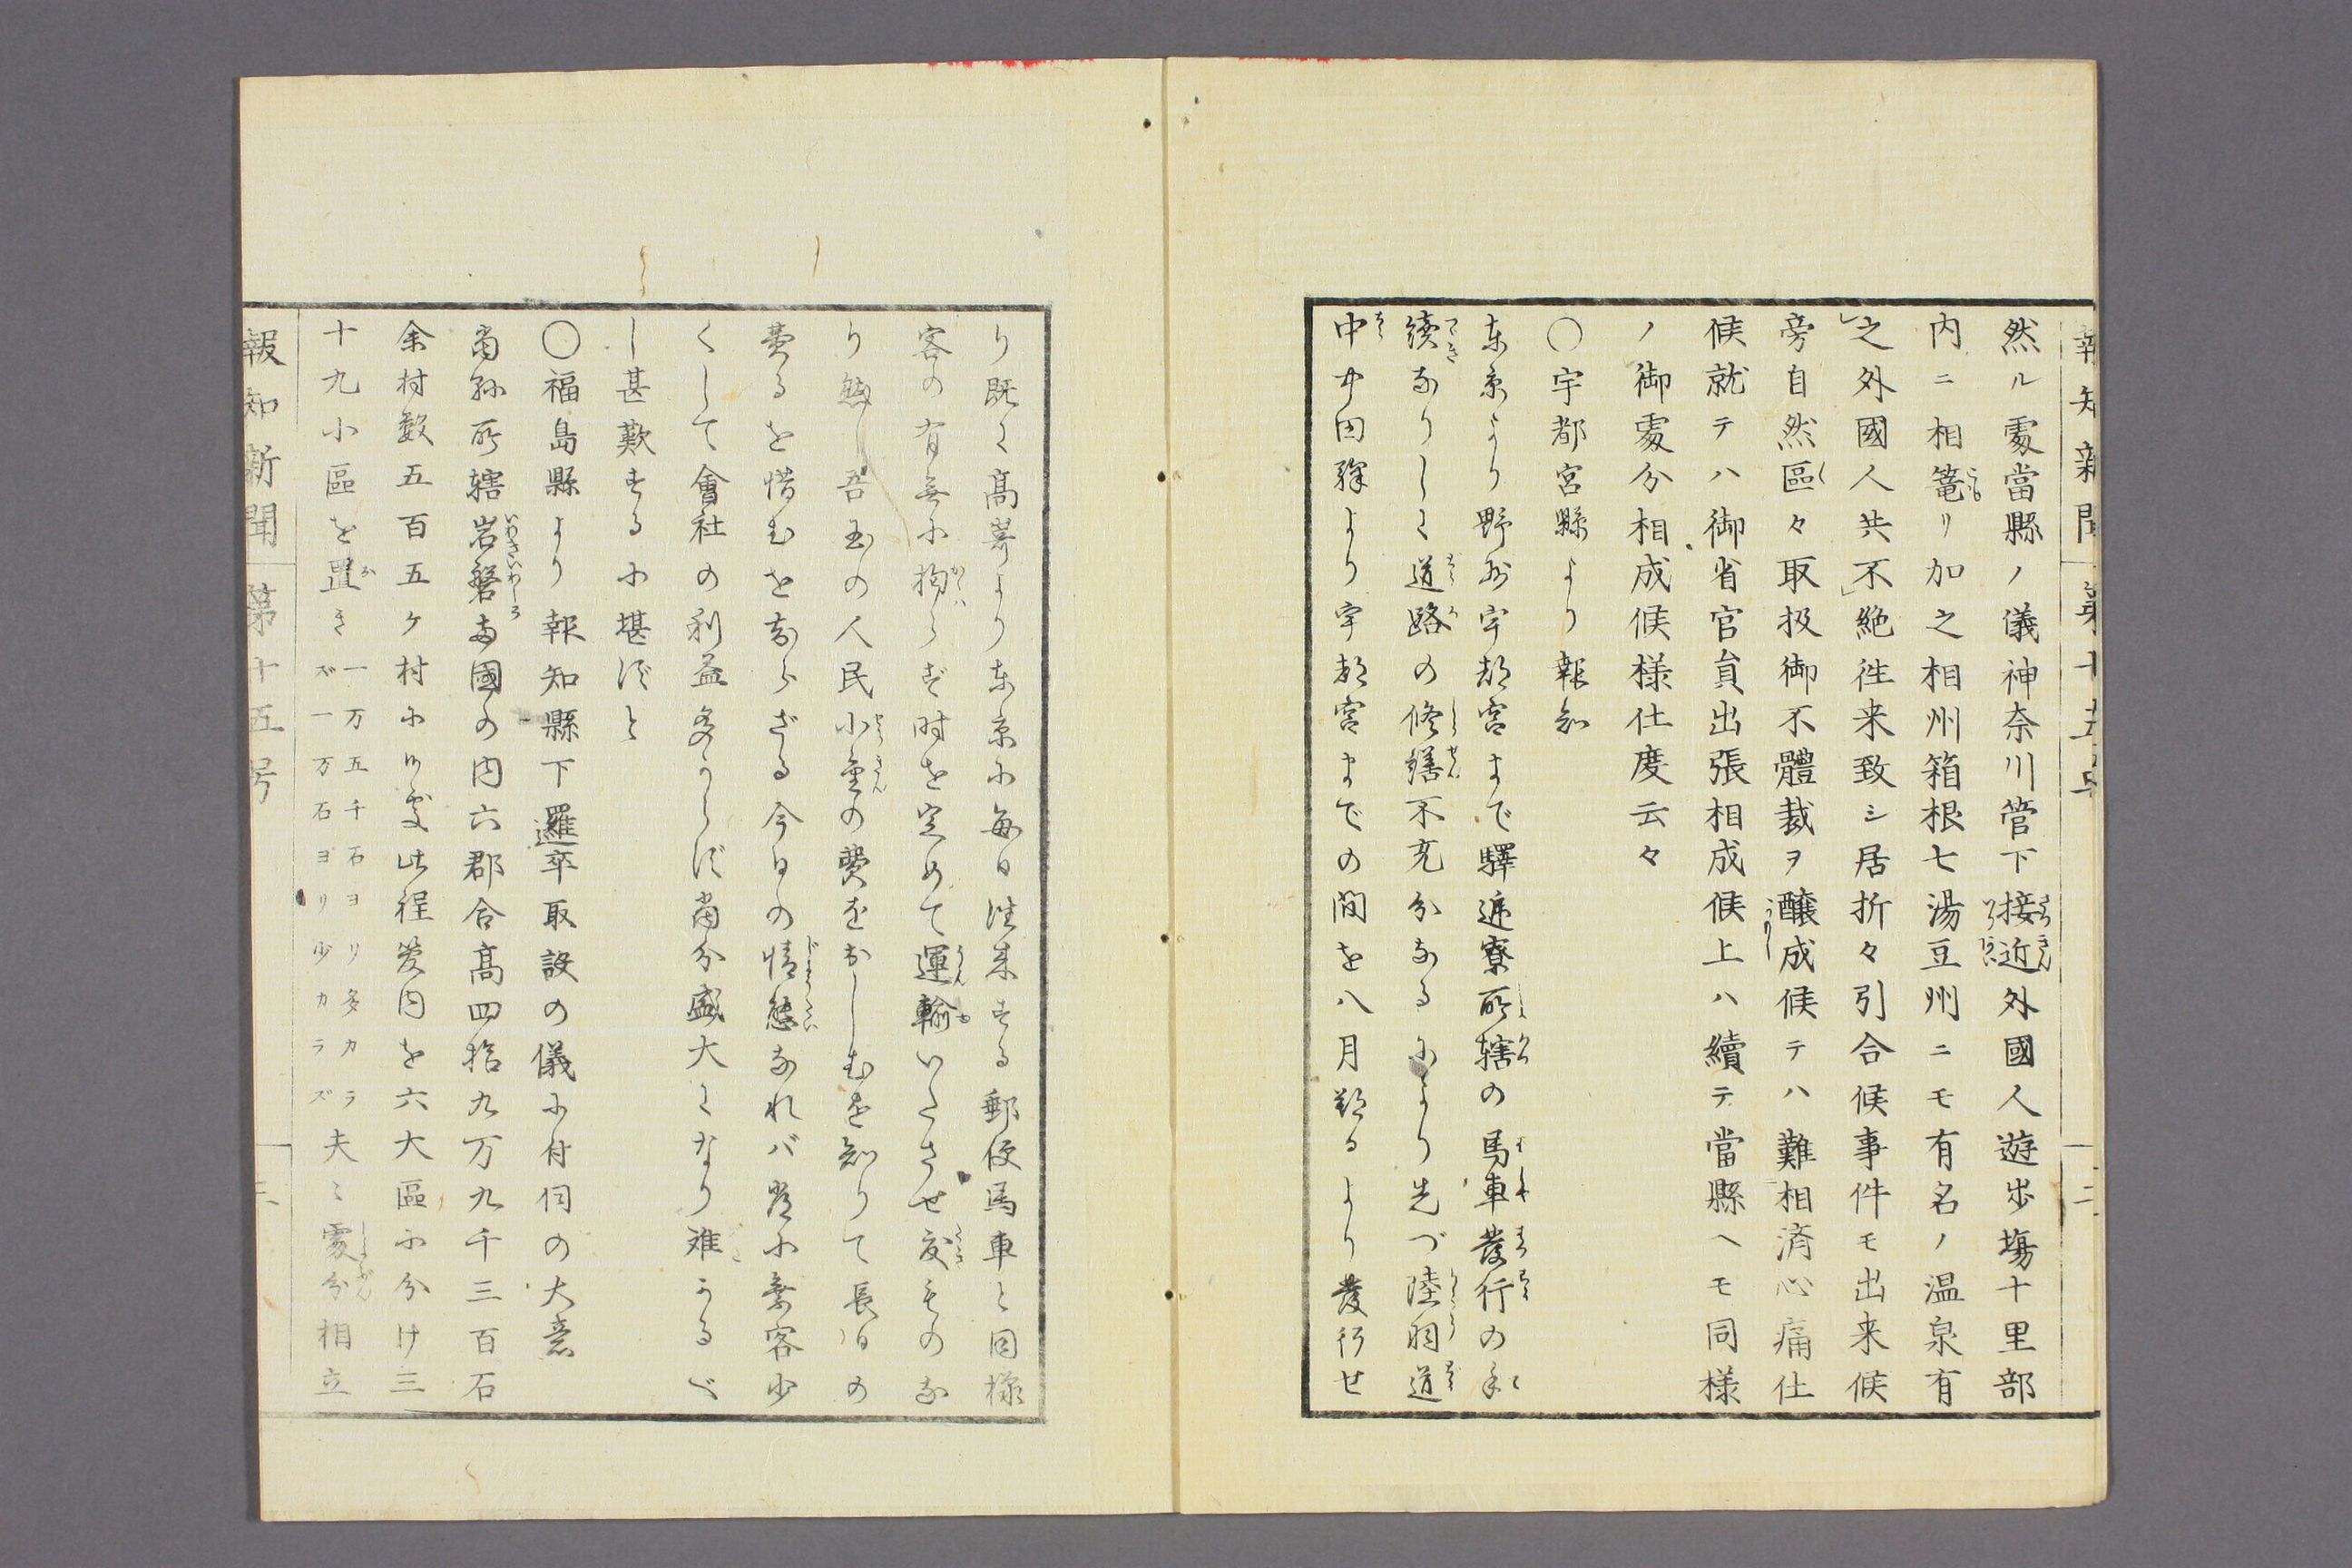 報知新聞 第十五号 二
然ル處當縣ノ儀神奈川管下接近外國人遊歩塲十里部
内ニ相篭リ加之相州箱根七湯豆州ニモ有名ノ温泉有
之外國人共不絶徃来致シ居折々引合候事件モ出来候
旁自然區々取扱御不體裁ヲ醸成候テハ難相済心痛仕
候就テハ御省官員出張相成候上ハ續テ當縣ヘモ同様
ノ御處分相成候様仕度云々
〇宇都宮縣より報知
東京より野州宇都宮まで驛逓寮所轄の馬車發行の手
續なりしに道路の修繕不充分なるにより先づ陸羽道
中中田驛より宇都宮までの間を八月朔日より發行せ
り既に髙崎より東京に毎日徃来する郵便馬車と同様
客の有無に拘らず時を定めて運輸いたさせ度ものな
り然し吾国の人民小金の費をおしむを知りて長日の
費るを惜むを知らざる今日の情態なれバ常に乗客少
くして會社の利益多からず當分盛大になり難かるべ
し甚歎するに堪ずと
〇福島縣より報知縣下邏卒取設の儀に付伺の大意
當縣所轄岩磐両國の内六郡合髙四拾九万九千三百石
余村数五百五ケ村に御座此程管内を六大區に分け三
十九小區を置き一万五千石ヨリ多カラズ一万石ヨリ少カラズ夫々處分相立
報知新聞 第十五号 三